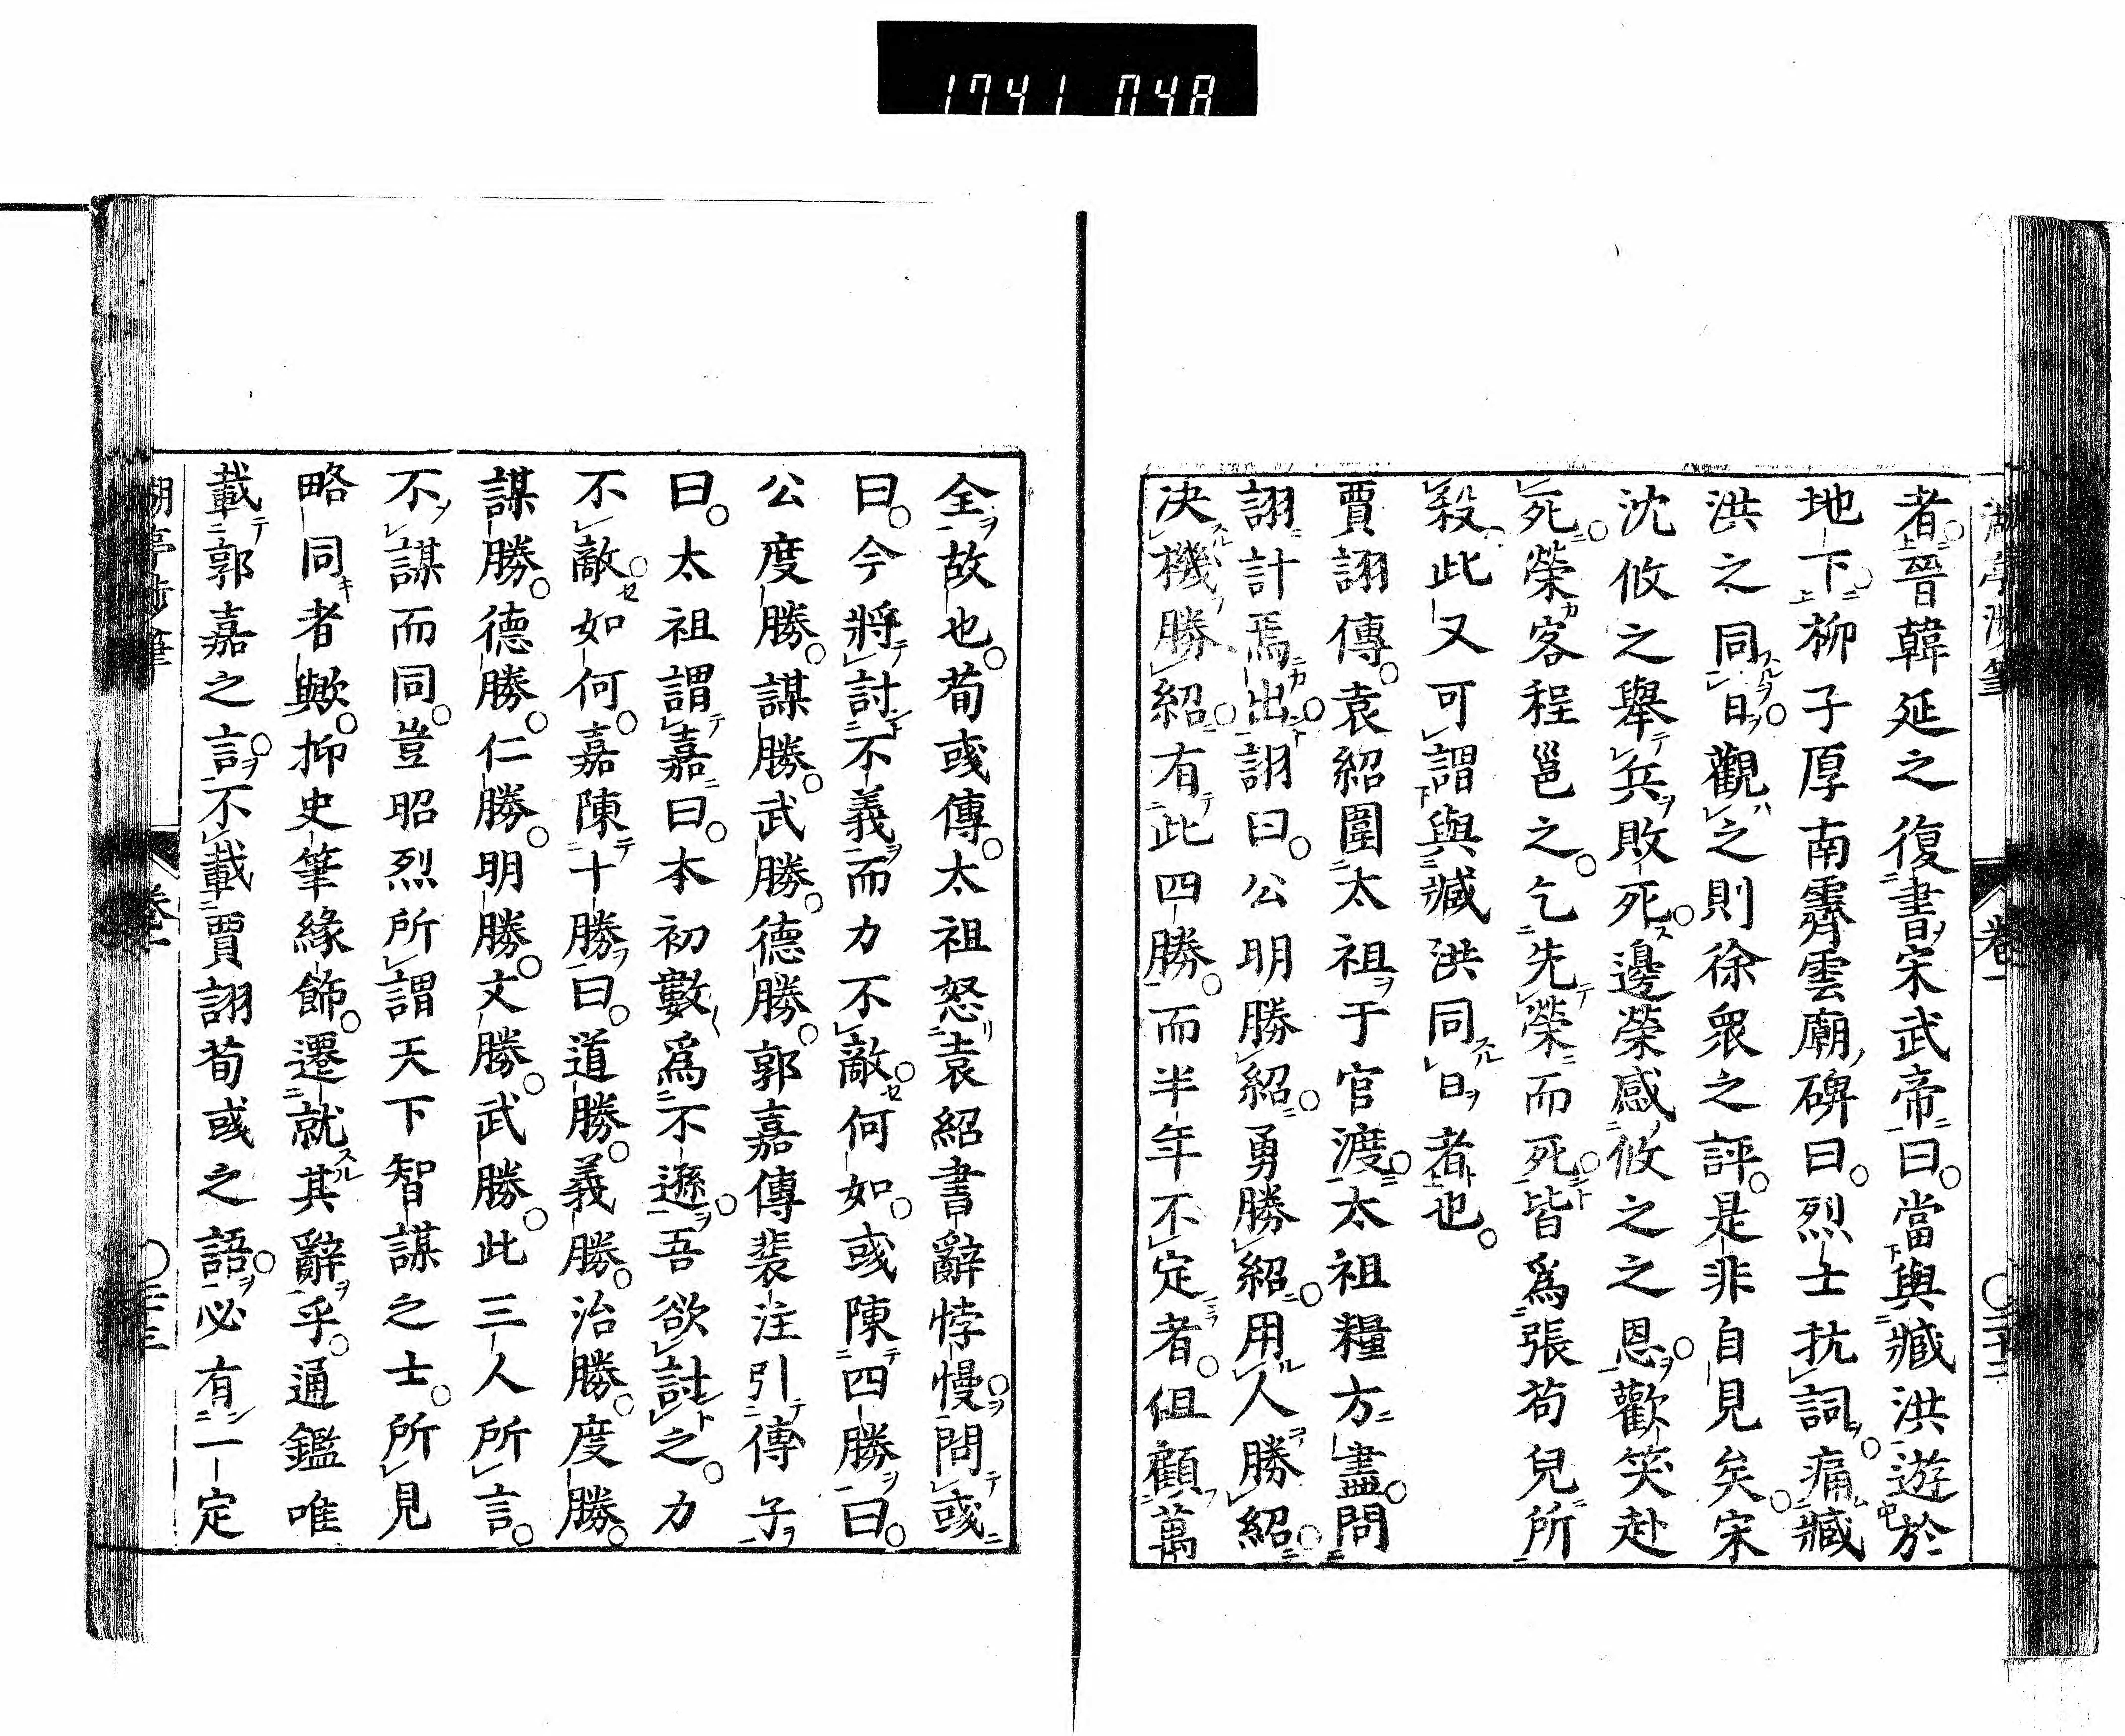 1741 048
者晉韓延之復書宋武帝曰當與臧洪遊於
地下柳子厚南霽雲廟碑曰烈士抗詞痛臧
洪之同日觀之則徐衆之評是非自見矣宋
沈攸之舉兵敗死邊榮感攸之之恩歡笑赴
死榮客程邕之乞先榮而死皆爲張苟兒所
殺此又可謂與臧洪同日者也
賈詡傳袁紹圍太祖于官渡太祖糧方盡問
詡計焉出詡曰公明勝紹勇勝紹用人勝紹
决機勝紹有此四勝而半年不定者但顧萬
卷一
全故也荀彧傳太祖怒袁紹書辭悖慢問彧
曰今將討不義而力不敵何如彧陳四勝曰
公度勝謀勝武勝德勝郭嘉傳裴注引傅子
曰太祖謂嘉曰本初數爲不遜吾欲討之力
不敵如何嘉陳十勝曰道勝義勝治勝度勝
謀勝德勝仁勝明勝文勝武勝此三人所言
不謀而同豈昭烈所謂天下智謀之士所見
略同者歟抑史筆緣飾遷就其辭乎通鑑唯
載郭嘉之言不載賈詡荀彧之語必有一定